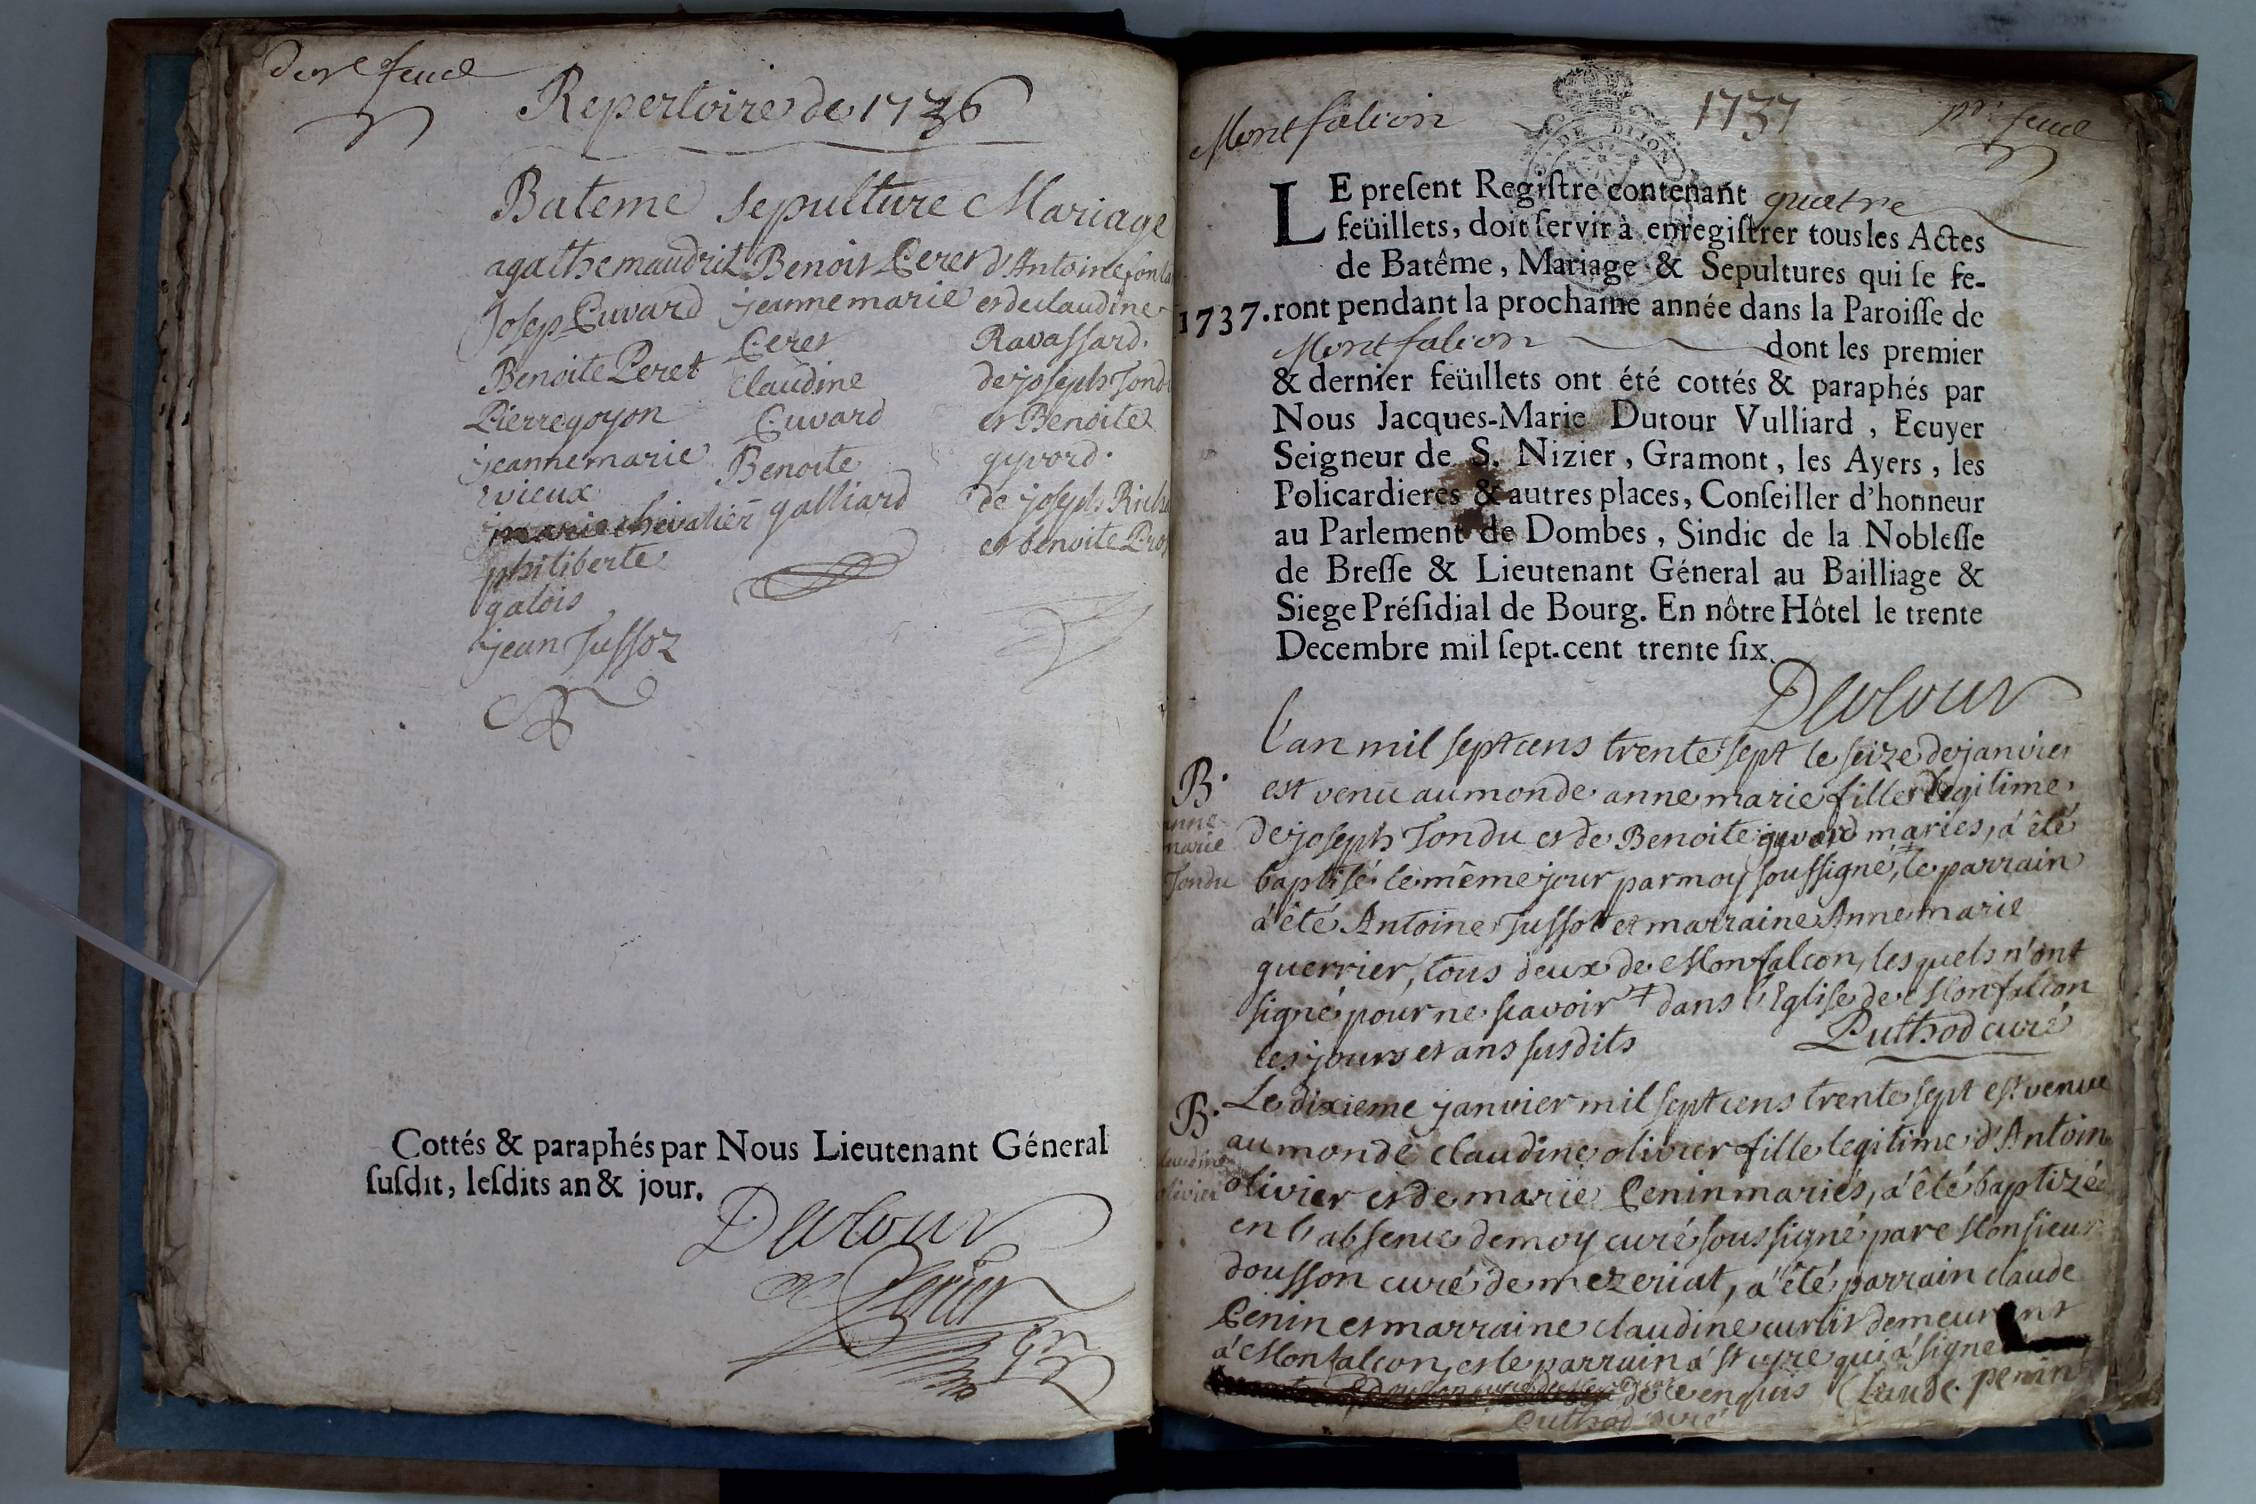 Repertoire de 1736
Bateme
agathe maudrit
Josep Cuvard
Benoite Peret
Pierre goyon
jeanne marie
vieux
marie chevalier
philiberte
galois
jean Jussoz
sepulture
Benoit
jeanne marie
Claudine
Cuvard
Benoite
galliard
Mariage
d'Antoine
et de claudine
Ravassard.
de joseph Tond
et Benoite
gyvord.
de joseph Rich
et benoite
Cottés & paraphés par Nous Lieutenant Géneral
susdit, lesdits an & jour.
Dutour
Montfalcon
1737
DE DIJON
LE present Registre contenant quatre
feüillets, doit servir à enregistrer tous les Actes
de Batême, Mariage & Sepultures qui se fe-
1737. ront pendant la prochaine année dans la Paroisse de
Montfalcon dont les premier
& dernier feüillets ont été cottés & paraphés par
Nous Jacques-Marie Dutour Vulliard, Ecuyer
Seigneur de S. Nizier, Gramont, les Ayers, les
Policardieres & autres places, Conseiller d'honneur
au Parlement de Dombes, Sindic de la Noblesse
de Bresse & Lieutenant Géneral au Bailliage &
Siege Présidial de Bourg. En nôtre Hôtel le trente
Decembre mil sept-cent trente six.
Dutour
L'an mil sept cens trente sept le seize de janvier
B. est venu au monde anne marie fille legitime
anne marie Tondu
de joseph Tondu et de Benoite gyvord maries, a été
baptisé le même jour par moy soussigné, le parrain
a été Antoine Jussot et marraine Anne marie
guerrier, tous deux de Monfalcon, lesquels n'ont
signé pour ne scavoir + dans l'Eglise de Monfalcon
les jours et ans susdits Puthod curé
B. Le dixieme janvier mil sept cens trente sept est venue
claudine olivier
au monde claudine olivier fille legitime d'Antoin
olivier et de marie Penin mariés, a été baptizée
en l'absence de moy curé soussigné par Monsieur
dousson curé de mezeriat, a été parrain claude
Penin et marraine claudine curlit demeurant
a Monfalcon, et le parrain a St cyre qui a signé
de ce enquis Claude penin
Puthod curé